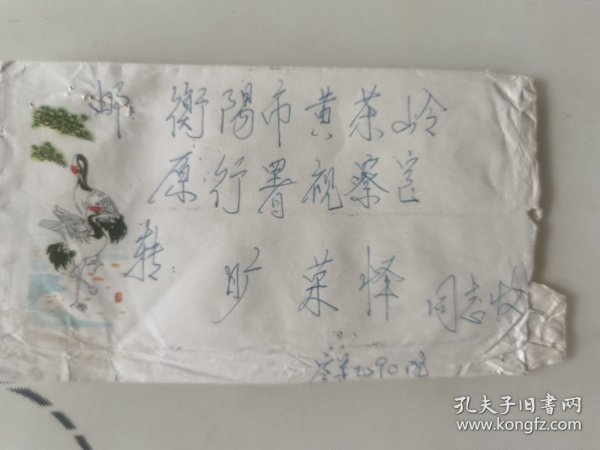 邮 衡阳市黄茶岭
原行署视察室
转: 旷菓怿 同志收
孔夫子旧书网
www.kongfz.com